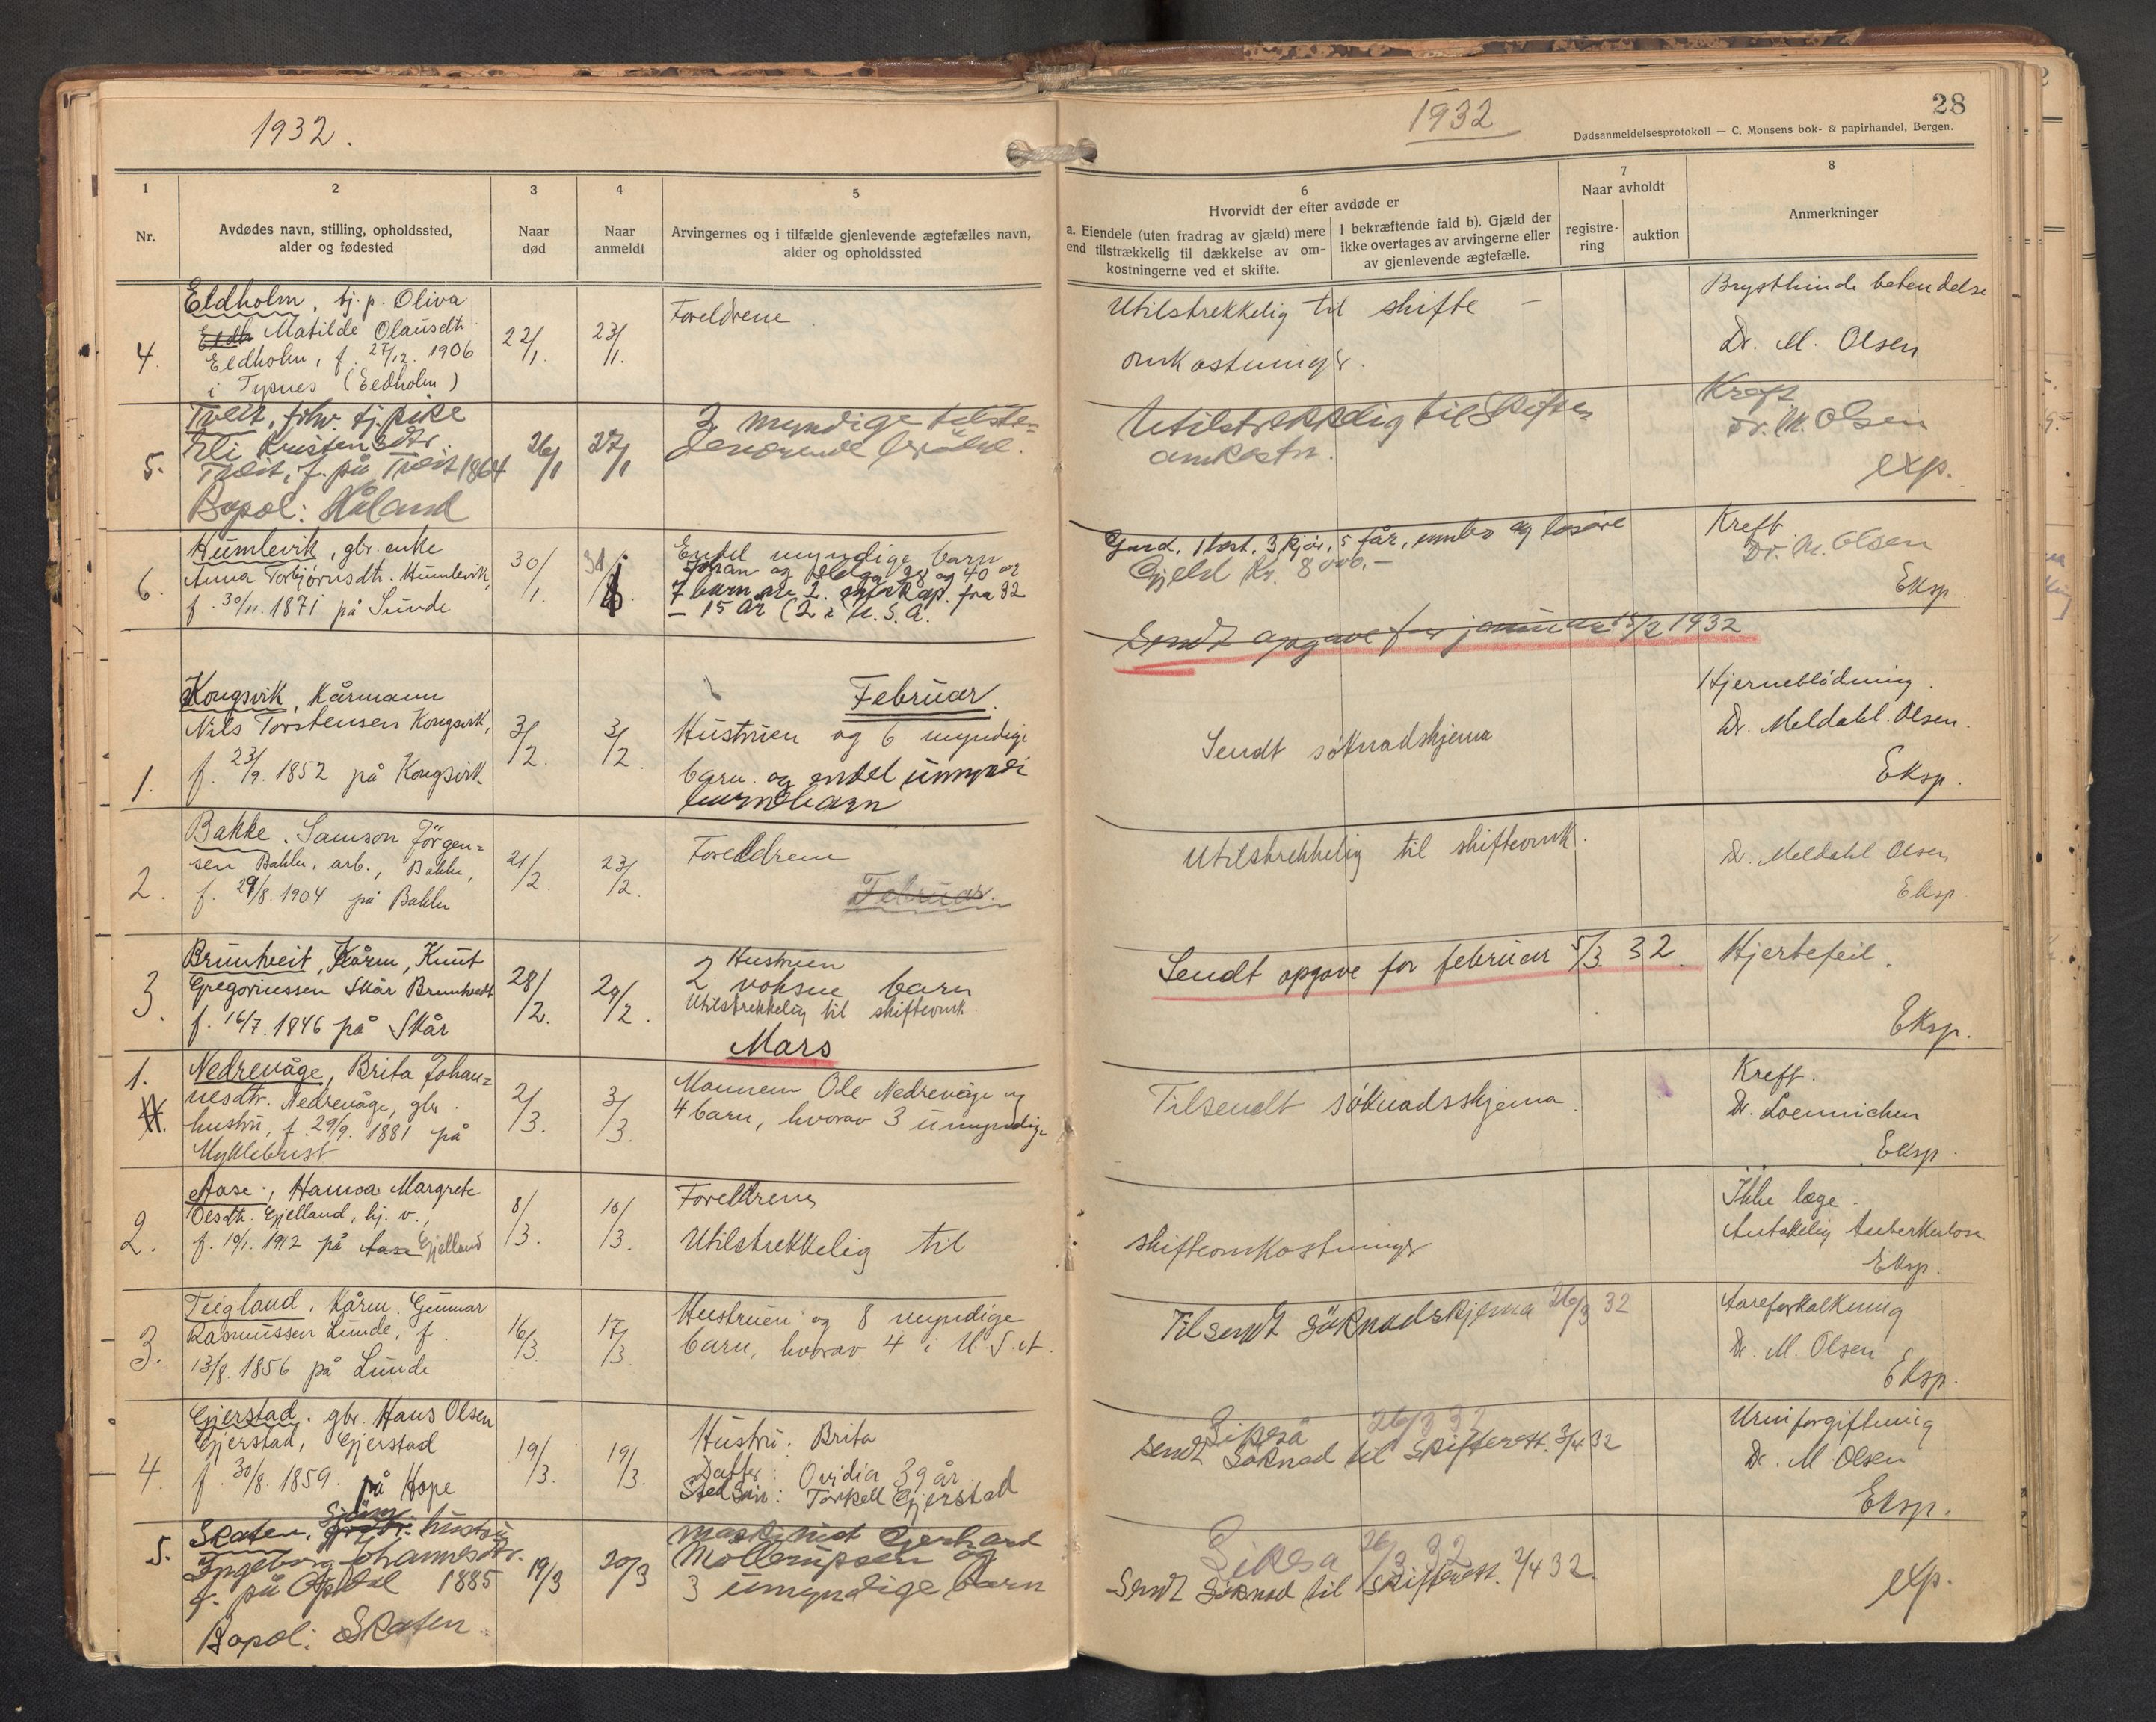 1932.
1932
28
Dødsanmeldelsesprotokoll — C. Monsens bok- & papirhandel, Bergen.
1
2
3
4
5
6
7
8
Nr.
Avdødes navn, stilling, opholdssted,
alder og fødested
Naar
død
Naar
anmeldt
Arvingernes og i tilfælde gjenlevende ægtefælles navn,
alder og opholdssted
Hvorvidt der efter avdøde er
a. Eiendele (uten fradrag av gjæld) mere
end tilstrækkelig til dækkelse av om-
kostningerne ved et skifte.
I bekræftende fald b). Gjæld der
ikke overtages av arvingerne eller
av gjenlevende ægtefælle.
Naar avholdt
registre-
ring
auktion
Anmerkninger
4.
Eldholm, tj. p. Oliva
Matilde Olausdtr.
Eldholm, f. 27/12. 1906
i Tysnes (Eldholm)
22/1.
23/1.
Foreldrene.
Utilstrekkelig til skifte —
omkostninger.
Brysthinde betendelse
Dr. M. Olsen
5.
Tveit, fhv. tj. pike
Eli Kristensdtr.
Tveit, f. på Tveit 1864
Bopel: Håland
26/1
27/1
3 myndige tilste-
deværende
Utilstrekkelig til skiftes
omkostn.
Kreft
Dr. M. Olsen
exp.
6.
Humlevik, gbr. enke
Anna Torbjørnsdtr. Humlevik,
f. 30/11. 1871 på Sunde
30/1.
31/1.
Endel myndige barn
Johan og Helga 38 og 40 år
7 barn av 2. ekteskap. fra 32
— 15 år (2 i U.S.A.
Gard, 1 hest, 3 kjør, 5 får, innbo og løsøre
Gjeld Kr. 8000.-
Kreft
Dr. M. Olsen
Eksp
Sendt opgave for januar 15/2 1932
Februar.
1.
Kongsvik, Kårmann
Nils Torstensen Kongsvik,
f. 23/9. 1852 på Kongsvik
3/2.
3/2.
Hustruen og 6 myndige
barn og endel umyndi
barnebarn
Sendt søknadskjema
Hjerneblødning.
Dr. Meldahl Olsen.
Eksp.
2.
Bakke. Samson Jørgen=
sen Bakke, arb., Bakke,
f. 29/8. 1904 på Bakke
21/2.
23/2.
Foreldrene
Februar.
Utilstrekkelig til skifteomk.
Dr. Meldahl Olsen
Eksp
3.
Bruntveit, Kårm, Knut
Gregoriussen Skår Bruntveit
f. 16/7. 1846 på Skår
28/2.
29/2.
Hustruen
2 voksne barn
Utilstrekkelig til skifteomk.
Sendt opgave for februar 5/3. 32.
Hjertefeil.
Eksp.
Mars
1.
Nedrevåge, Brita Johan=
nesdtr. Nedrevåge, gbr.
hustru, f. 29/9. 1881 på
Myklebust
2/3.
3/3.
Mannen Ole Nedrevåge og
4 barn, hvorav 3 umyndige
Tilsendt søknadsskjema.
Kreft.
Dr. Loennichen
Eksp.
2.
Aase., Hanna Margrete
Olsdtr. Gjelland, hj. v.,
f. 10/1. 1912 på Aase Gjelland
8/3.
10/3.
Foreldrene
Utilstrekkelig til
skifteomkostninger
Ikke læge.
Antakelig tuberkulose
Eksp.
3.
Teigland. Kårm. Gunnar
Rasmussen Lunde, f.
13/8. 1856 på Lunde
16/3.
17/3.
Hustruen og 8 myndige
barn, hvorav 4 i U.S.A.
Tilsendt søknadskjema 26/3 32
Aareforkalkning
Dr. M. Olsen
Eksp.
4.
Gjerstad. gbr. Hans Olsen
Gjerstad, Gjerstad
f. 30/8. 1859. på Hope
19/3.
19/3.
Hustru: Brita
Datter: Ovidia 39 år
Stedsøn: Torkell Gjerstad
26/3 32
Sendt Søknad til skifterett. 3/4 32
Urinforgiftning
Dr. M. Olsen
Eksp.
5.
Skaten, hustru
Ingeborg Johannesdtr.
f. på Opdal 1885
Bopel: Skaten.
19/3
20/3
maskinist Gerhard
Mollerupsen og
3 umyndige barn
26/3 32
Sendt Søknad til Skifterett. 2/4 32.
exp.